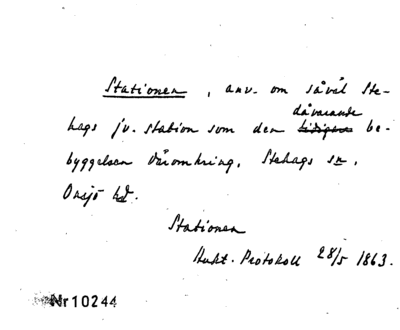 Stationen, anv. om såväl Ste-
dåvarande
hags jv. station som den tidigare be-
byggelsen däromkring, Stehags sn,
Onsjö hd.
Stationen
Aukt. Protokoll 28/5 1863.
Nr 10244